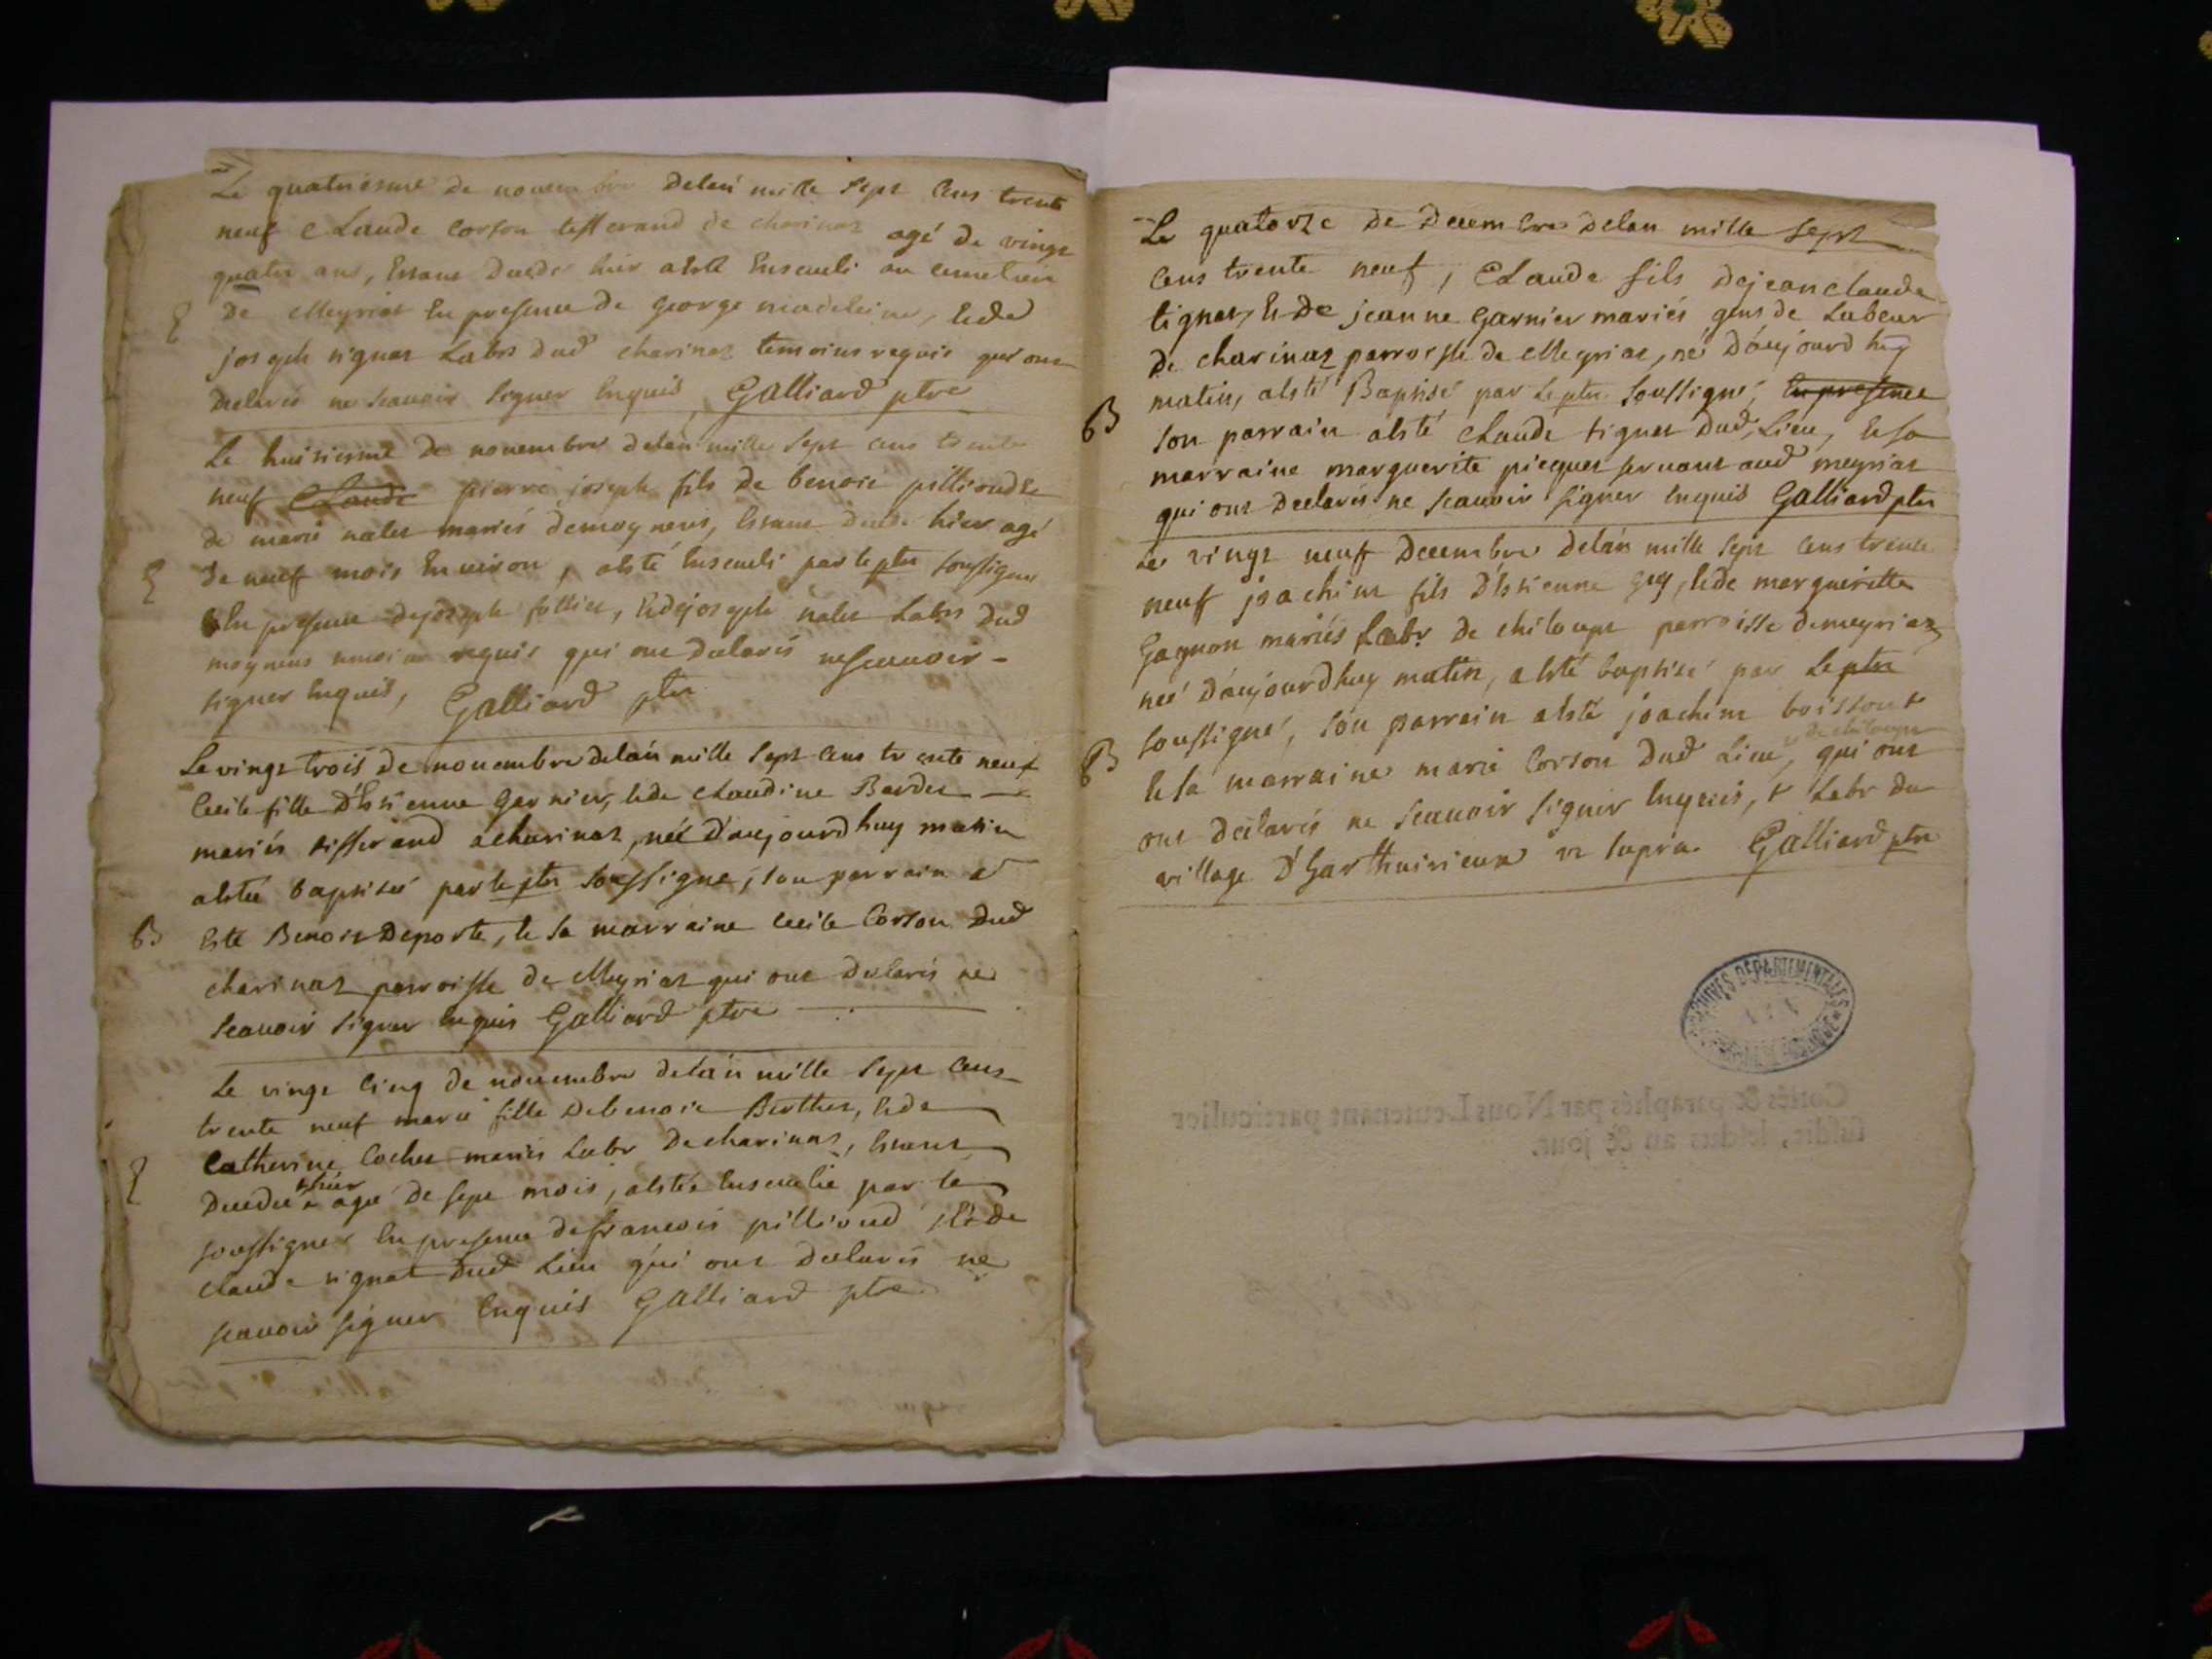 Le quatriesme de novembre delan mille sept cens trente
neuf Claude Corson tisserand de charinaz agé de vingt
quatre ans, estant decedé hier a esté enseveli au cimetiere
de Meyriat en presence de george madeleine, et de
E
joseph tignat Labrs dud charinaz temoins requis qui ont
declarés ne scavoir signer enquis, Galliard ptre
Le huitiesme de novembre delan mille sept cens trente
neuf Claude pierre joseph fils de benoit pillioud et
de marie nalet mariés de moyneins, estant decedé hier agé
de neuf mois environ, a esté enseveli par le ptre soussigné
E
en presence de joseph follier, et de joseph nalet Labrs dud
moyneins temoins requis qui ont declarés ne scavoir
signer enquis, Galliard ptre
Le vingt trois de novembre delan mille sept cens trente neuf
Cecile fille d'estienne Garnier, et de Claudine Bardet
mariés tisserand a charinaz, née d'aujourdhuy matin
a estée baptisée par le ptre soussigné, son parrain a
B
esté Benoit Deporte, et sa marraine Cecile Corson dud
charinaz parroisse de Meyriat qui ont declarés ne
scavoir signer enquis Galliard ptre
Le vingt cinq de novembre delan mille sept cens
trente neuf marie fille de benoit Berthet, et de
Catherine Cochet mariés Labr de charinaz, estant
E
decedée hier agée de sept mois, a estée ensevelie par le
soussigné en presence de francois pillioud, et de
claude tignat dud Lieu qui ont declarés ne
scavoir signer enquis Galliard ptre
Le quatorze de Decembre delan mille sept
cens trente neuf, Claude fils de jean claude
tignat, et de jeanne Garnier mariés gens de Labeur
de charinaz parroisse de Meyriat, né d'aujourdhuy
matin, a esté Baptisé par le ptre soussigné, en presence
B
son parrain a esté Claude tignat dud Lieu, et sa
marraine marguerite picquet servant aud meyriat
qui ont declarés ne scavoir signer enquis Galliard ptre
Le vingt neuf Decembre delan mille sept cens trente
neuf joachim fils d'estienne guy, et de marguerite
Gagnon mariés Labr de chiloup parroisse de meyriat
né d'aujourdhuy matin, a esté baptisé par le ptre
soussigné, son parrain a esté joachim boisson +
de chiloup
B
et sa marraine marie Corson dud Lieu, qui ont
ont declarés ne scavoir signer enquis, + Labr du
village d' ut supra. Galliard ptre
ARCHIVES DEPARTEMENTALES
AIN
Cottés & paraphés par Nous Lieutenant particulier
susdit, lesdits an & jour.